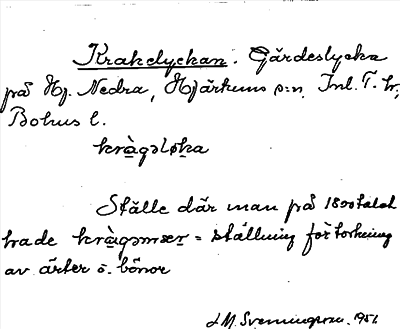 Krakelyckan. Gärdeslycka
på Hj. Nedra, Hjärtums s:n, Inl. T. hd,
Bohus l.
kràgəløka
Ställe där man på 1800talet
hade kràgəmsær = ställning för torkning
av ärter o. bönor
J M. Svenningsson. 1951